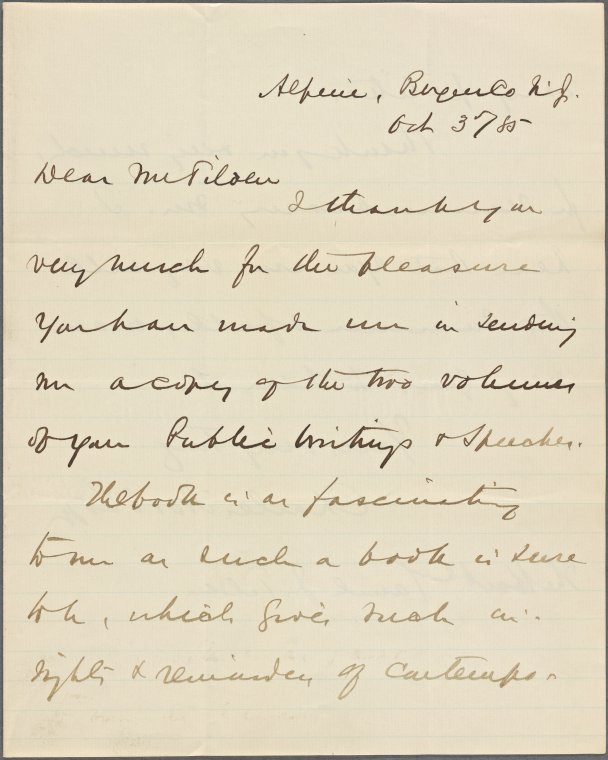 Alpine, Bergen Co N.J.
Oct 3d/85
Dear Mr Tilden
I thank you
very much for the pleasure
you have made me in sending
me a copy of the two volumes
of your Public Writings & Speeches.
The book is as fascinating
to me as such a book is sure
to be, which gives such in-
sights & reminders of contempo-